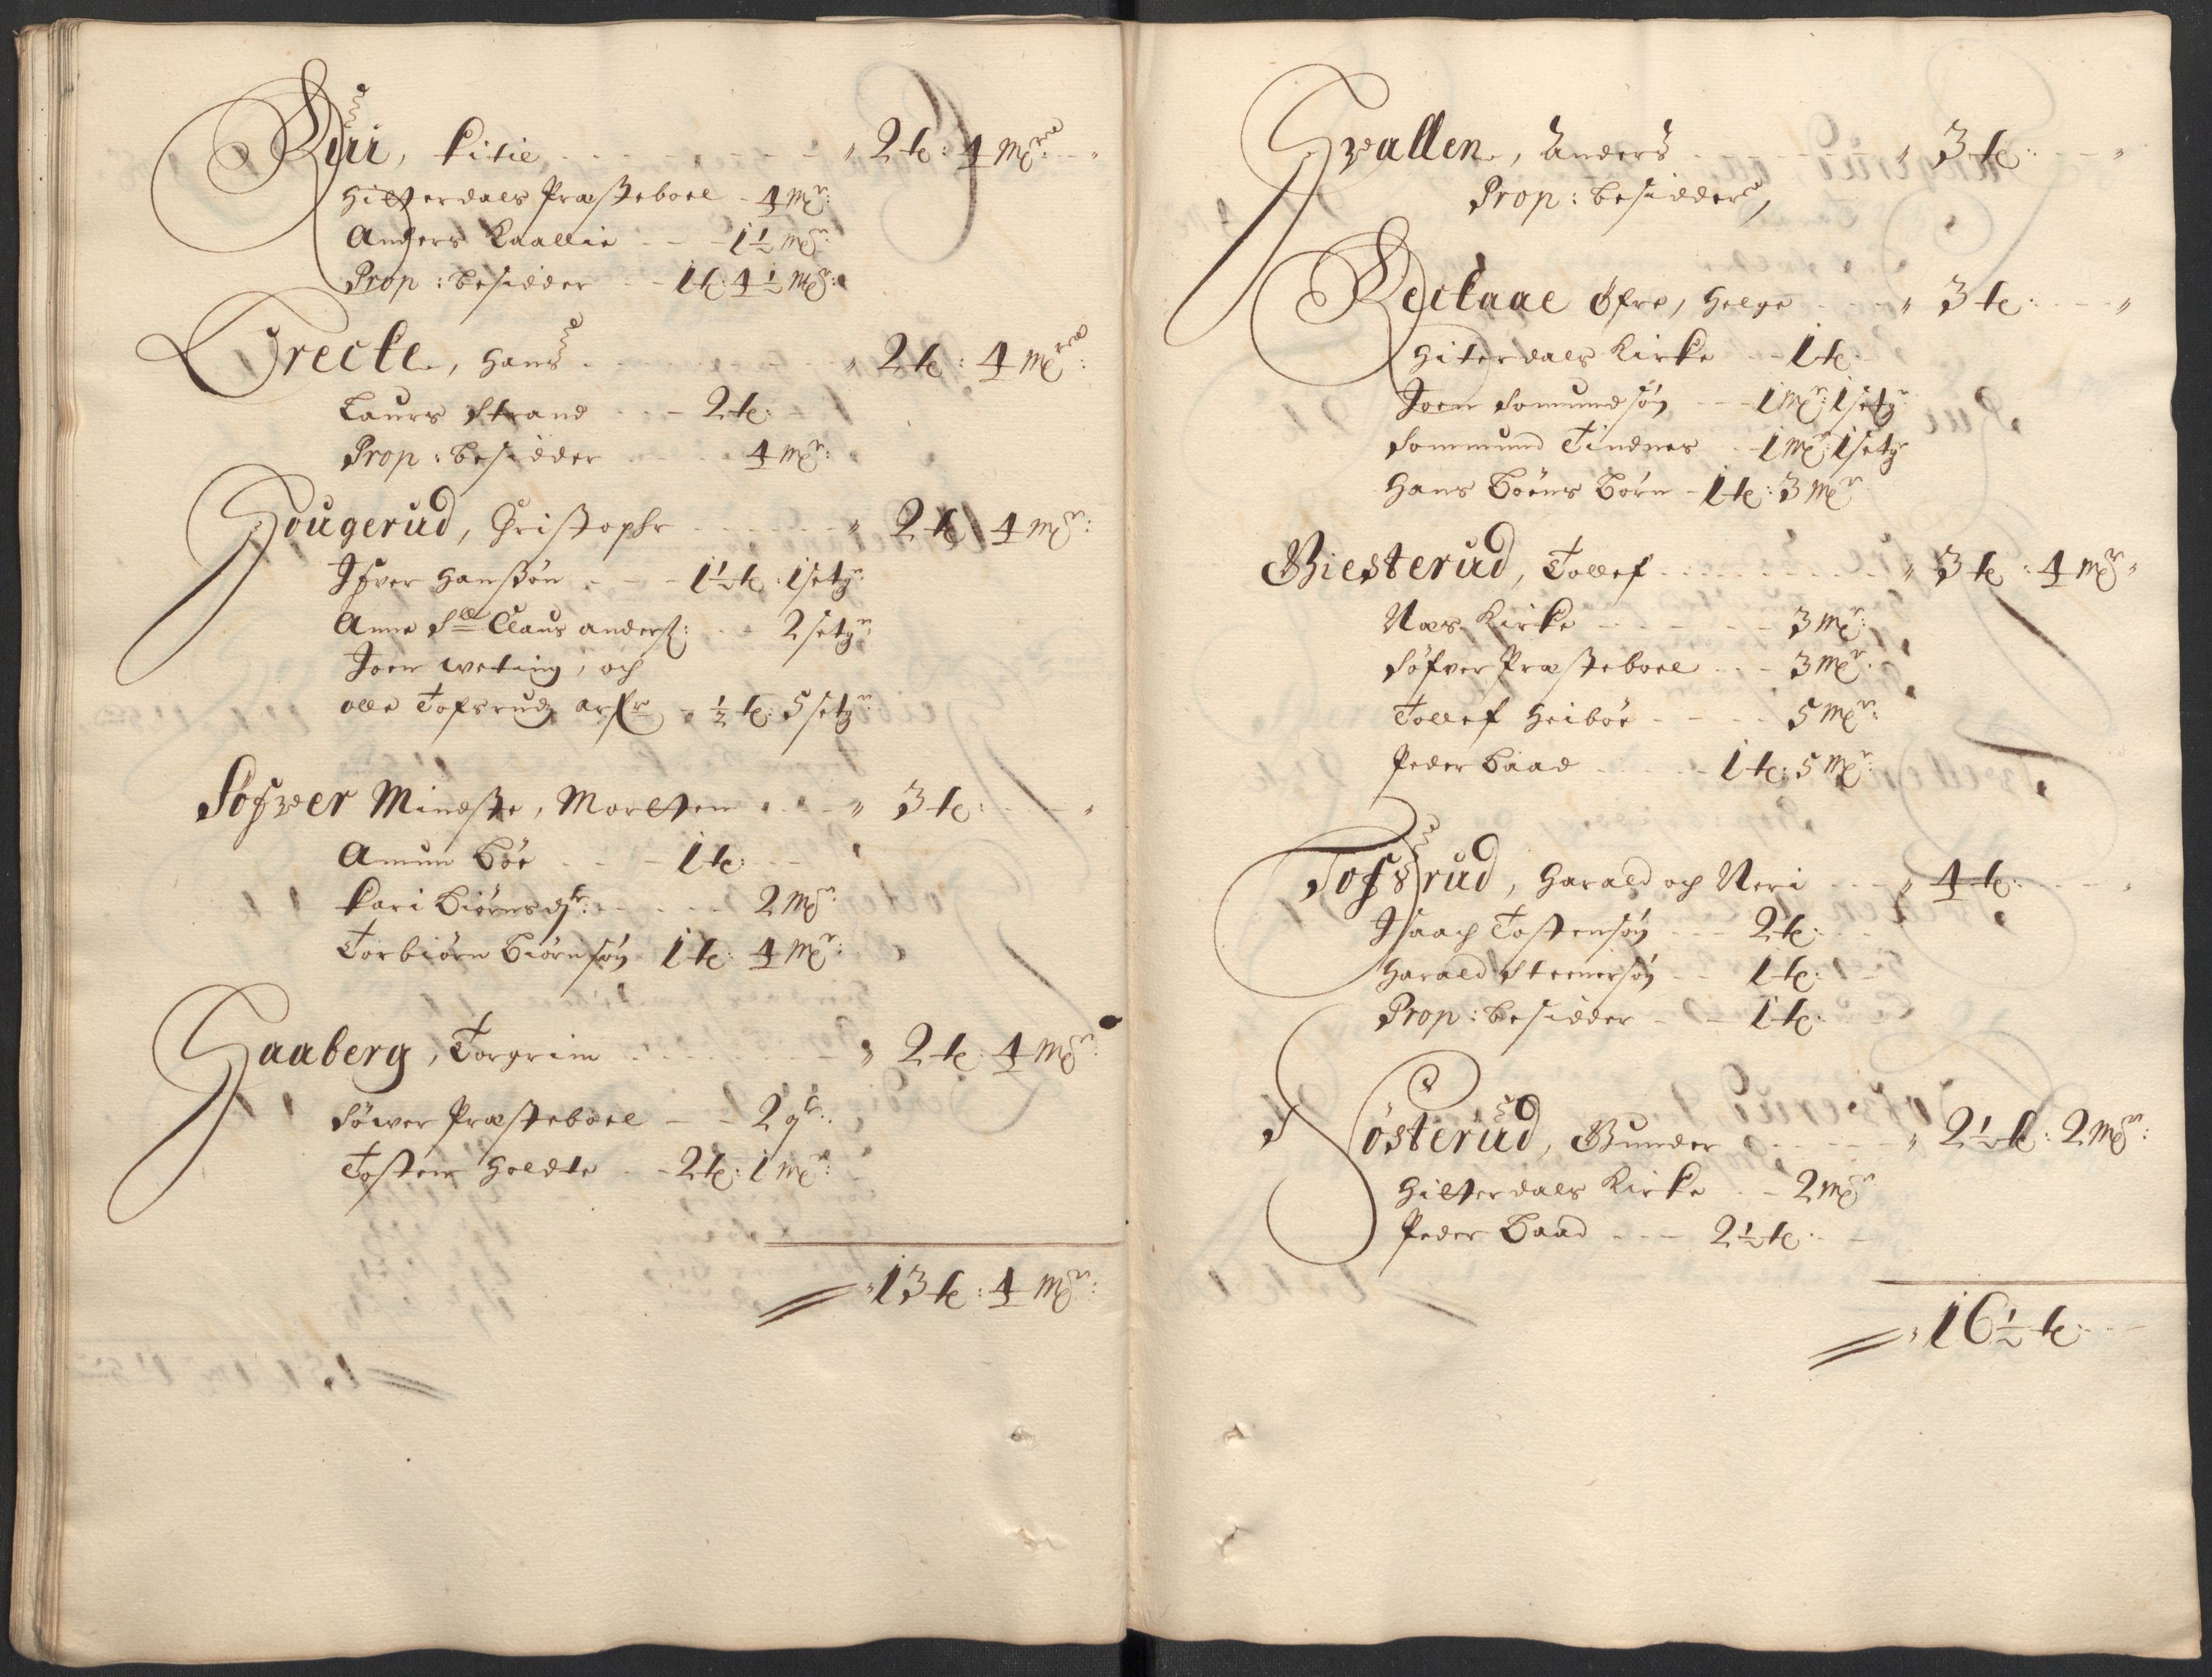 Rui, Kitil . . . . . . . „ 2 t: 4 mrr: - „
Hitterdals Præsteboel - 4 mr:
Anders Kaallie - - 1½ mr:
Prop: besidder - - 1 t: 4½ mr:
Treckle, Hans . . . . . . „ 2 t: 4 mrr:
Laurs Strand . . - 2 t:
Prop: besidder . . . . 4 mr:
Hougerud, Christopher . . . . . „ 2 t: 4 mr:
Ifver Hanssøn . - - 1½ t: 1 setgr:
Anne Sll Claus anders: . . 2 setgr:
Joen weting, och
olle Tofsrudz arfr - ½ t: 5 setgr:
Søfver Mindste, Morten . . - „ 3 t: - - „
Amun Bøe - - - 1 t: - -
Kari Biørnsdtr: - - - 2 mr:
Torbiørn Biørnsøn 1 t: 4 mr:
Haaberg, Torgrim . . . . . . „ 2 t: 4 mr:
Søwer Præsteboel - - 2 gr:
Tosten Holdte - - 2 t: 1 mr:
„ 13 t: 4 mr:
Hvallen, Anders - - - „ 3 t: - - „
Prop: besidder,
øfre, Helge - - - „ 3 t: - - „
Hiterdals Kirke - - 1 t.
Joen Somundsøn - - 1 mr: 1 setgr:
Sommund Tindnes - 1 mr: 1 setgr
Hans Bøens Børn - 1 t: 3 mr
Biesterud, Tollef . . . . . . . „ 3 t: 4 mr „
Næs Kirke - - - - - 3 mr:
Søfver Præsteboel - - - 3 mr:
Tollef Heibøe - - - - 5 mr:
Peder Baad - - - - - 1 t: 5 mr:
Tofsrud, Harald och Neri - - - „ 4 t: - - „
Isaach Tostensøn - - - 2 t: - -
Harald Steenersøn - - 1 t: -
Prop: besidder - - 1 t:
Nøsterud, Gunder . . . . . . „ 2½ t: 2 mr:
Hitterdals Kirke - - 2 mr
Peder Baad - - - 2½ t: - -
„ 16½ t: - -